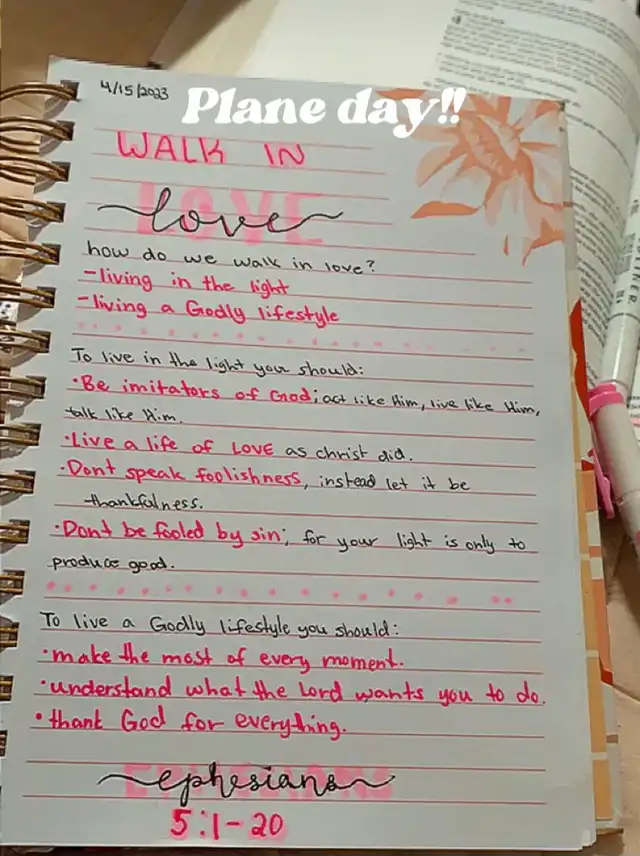 4/15/2023
Plane day!!
WALK IN
LOVE
love
how do we walk in love?
-living in the light
-living a Godly lifestyle
To live in the light you should:
·Be imitators of God; act like Him, live like Him,
talk like Him.
·Live a life of LOVE as christ did.
·Don't speak foolishness, instead let it be
thankfulness.
·Don't be fooled by sin; for your light is only to
produce good.
To live a Godly lifestyle you should:
·make the most of every moment.
·understand what the Lord wants you to do.
·thank God for everything.
ephesians
5:1-20